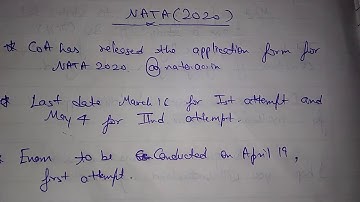 NATA(2020)
CoA has released the application form for
NATA 2020. @ nata.ac.in
Last date March 16 for Ist attempt and
May 4 for IInd attempt.
Exam to be Conducted on April 19,
first attempt.